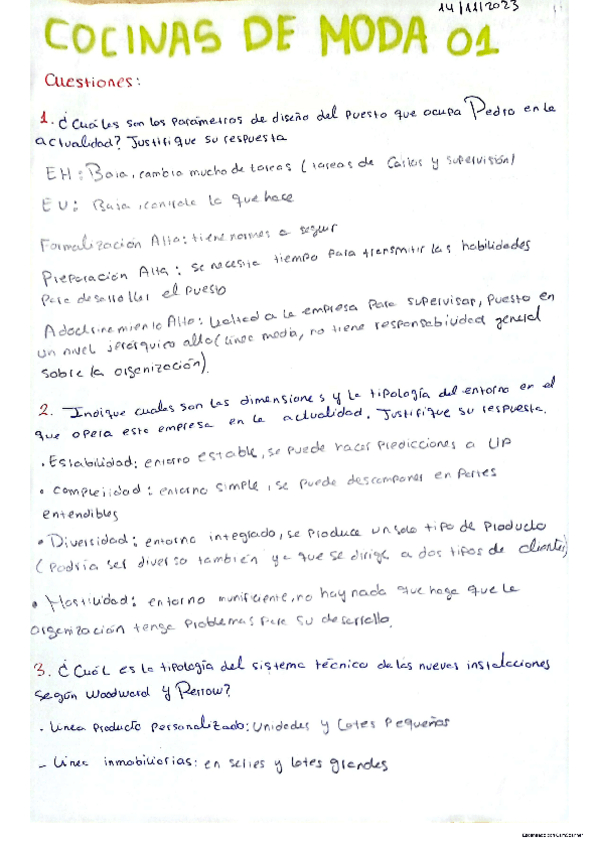 14/11/2023
COCINAS DE MODA 01
Cuestiones:
1. ¿Cuáles son los parámetros de diseño del puesto que ocupa Pedro en la
actualidad? Justifique su respuesta
EH: Baja, cambia mucho de tareas (tareas de Carlos y supervisión)
EV: Baja, controla lo que hace
Formalización Alta: tiene normas a seguir
Preparación Alta: se necesita tiempo para transmitir las habilidades
para desarrollar el puesto
Adoctrinamiento Alto: lealtad a la empresa para supervisar, puesto en
un nivel jerárquico alto (línea media, no tiene responsabilidad general
sobre la organización).
2. Indique cuales son las dimensiones y la tipología del entorno en el
que opera esta empresa en la actualidad. Justifique su respuesta.
• Estabilidad: entorno estable, se puede hacer predicciones a L/P
• Complejidad: entorno simple, se puede descomponer en partes
entendibles
• Diversidad: entorno integrado, se produce un solo tipo de producto
(Podría ser diverso también ya que se dirige a dos tipos de clientes)
• Hostilidad: entorno munificiente, no hay nada que haga que la
organización tenga problemas para su desarrollo.
3. ¿Cuál es la tipología del sistema técnico de las nuevas instalaciones
según Woodward y Perrow?
- Línea producto personalizado: Unidades y Lotes Pequeños
- Línea inmobiliarias: en series y lotes grandes